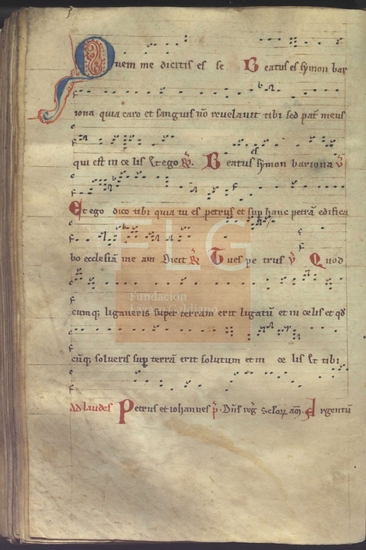 Quem me dicitis es se Beatus es symon bar
iona quia caro et sanguis nō revelavit tibi sed pat̄ meus
qui est in ce lis Et ego ℟ Beatus symon bariona ℣
Et ego dico tibi quia tu es petrus et sup hanc petrā edifica
bo ecclesiā me am Dicit ℟ Tu es pe trus ℣ Quod
FLG
Fundación
cumq; ligaveris super terram erit ligatū et in celis et qd
cūq; solveris sup terrā erit solutum et in ce lis Et tibi
Ad laudes Petrus et iohannes p̄ Dn̄s reḡ Argentum